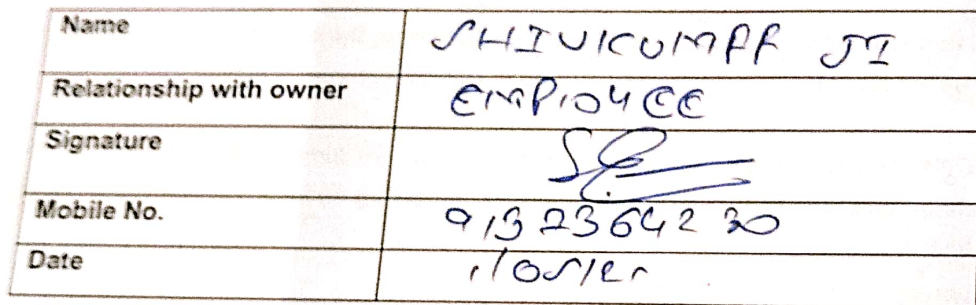 Name SHIVKUMAR JI
Relationship with owner EMPLOYEE
Signature
Mobile No. 9137364230
Date